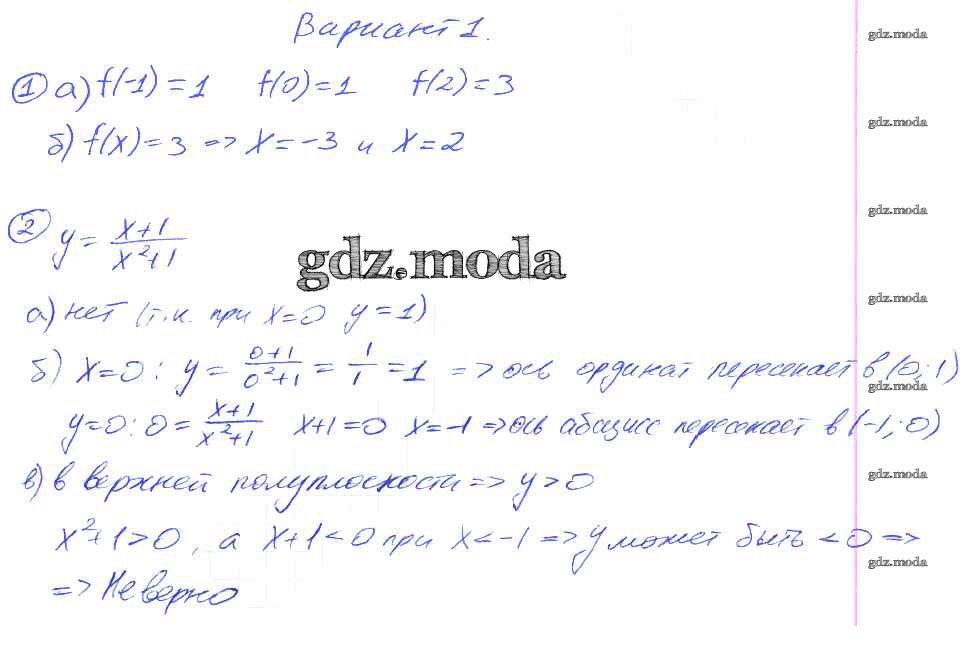 Вариант 1.
gdz.moda
① а) f(-1) = 1 f(0) = 1 f(2) = 3
gdz.moda
б) f(x) = 3 => x = -3 и x = 2
gdz.moda
② y = (x+1)/(x²+1)
gdz.moda
gdz.moda
а) нет (т.к. при x=0 y=1)
б) x=0: y = (0+1)/(0²+1) = 1/1 = 1 => ось ординат пересекает в (0; 1)
gdz.moda
y=0: 0 = (x+1)/(x²+1) x+1=0 x=-1 => ось абсцисс пересекает в (-1; 0)
gdz.moda
в) в верхней полуплоскости => y>0
x²+1>0, а x+1<0 при x<-1 => y может быть <0 =>
gdz.moda
=> Неверно